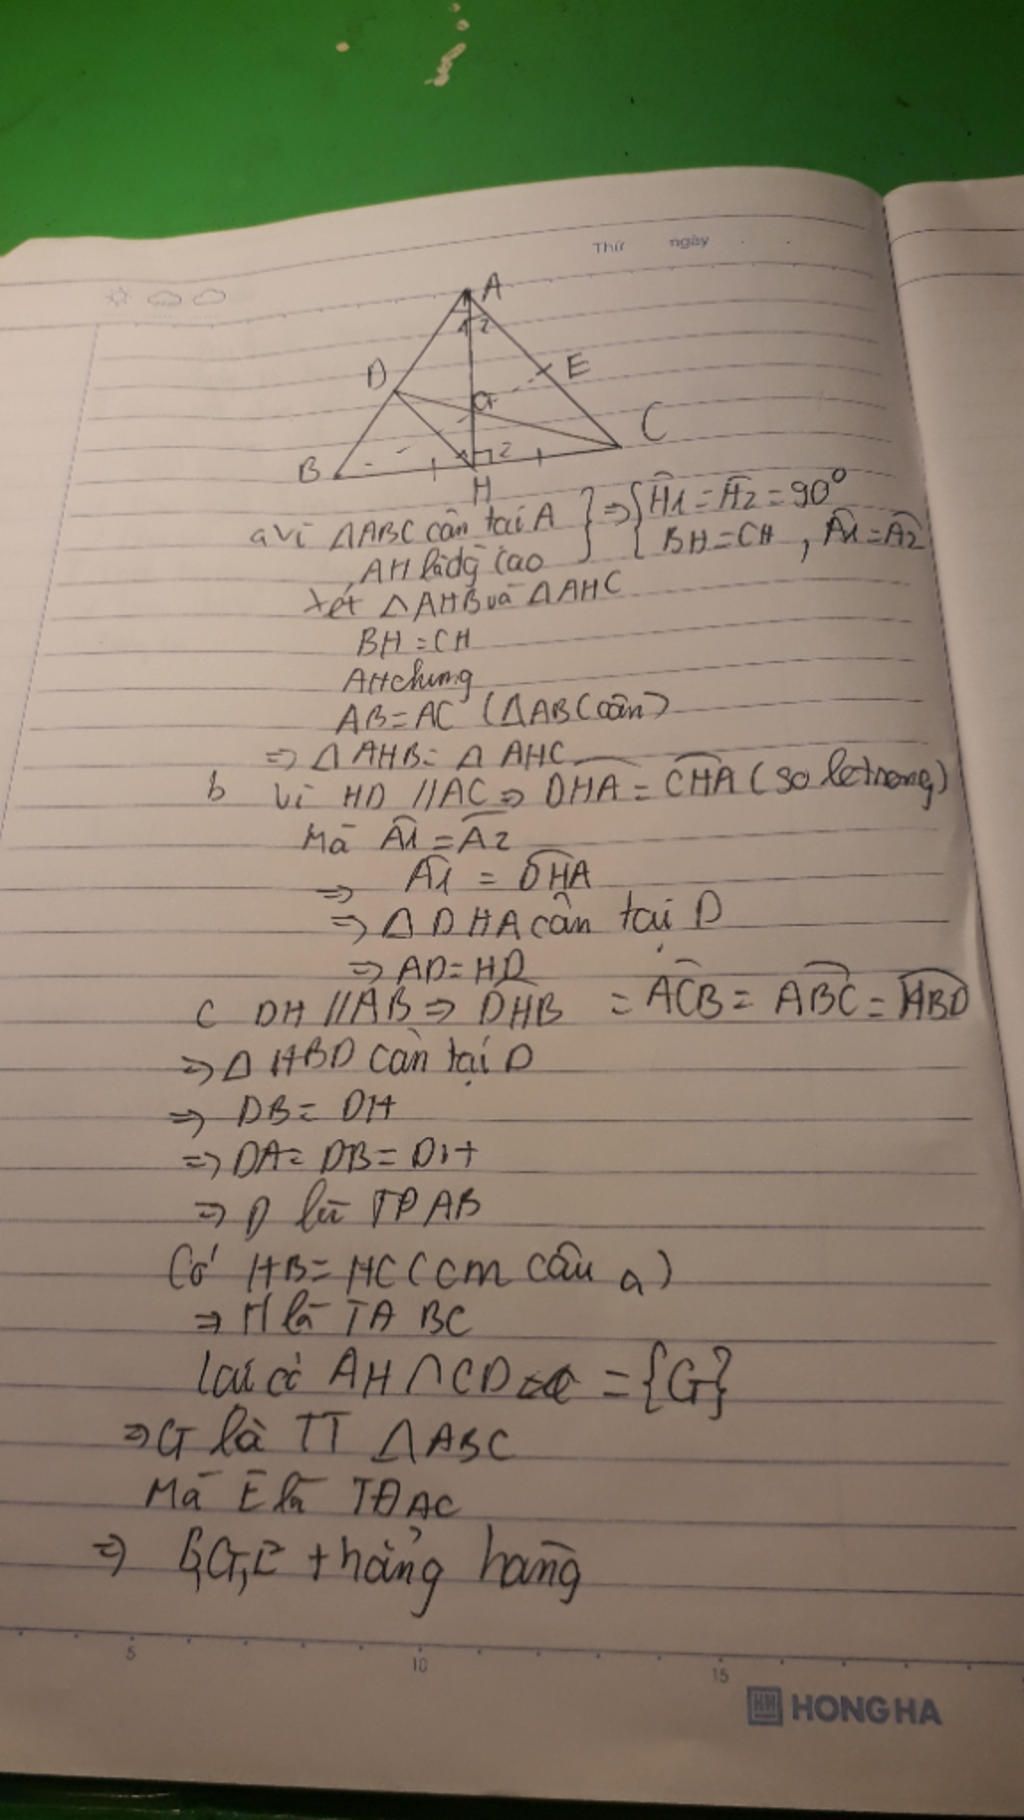 Thứ ngày
A
1 2
D
E
G
C
B
1 2
H
a Vì ΔABC cân tại A } ⇒ { Ĥ1 = Ĥ2 = 90°
AH là đg cao BH = CH , Â1 = Â2
Xét ΔAHB và ΔAHC
BH = CH
AH chung
AB = AC (ΔABC cân)
⇒ ΔAHB = ΔAHC
b Vì HD // AC ⇒ DHA = CHA (so le trong)
Mà Â1 = Â2
⇒ Â1 = DHA
⇒ ΔDHA cân tại D
⇒ AD = HD
c DH // AB ⇒ DHB = ACB = ABC = HBD
⇒ Δ HBD cân tại D
⇒ DB = DH
⇒ DA = DB = DH
⇒ D là TĐ AB
Có HB = HC (cm câu a)
⇒ H là TĐ BC
lại có AH ∩ CD = {G}
⇒ G là TT ΔABC
Mà E là TĐ AC
⇒ B,G,E thẳng hàng
5 10 15
HH HONG HA